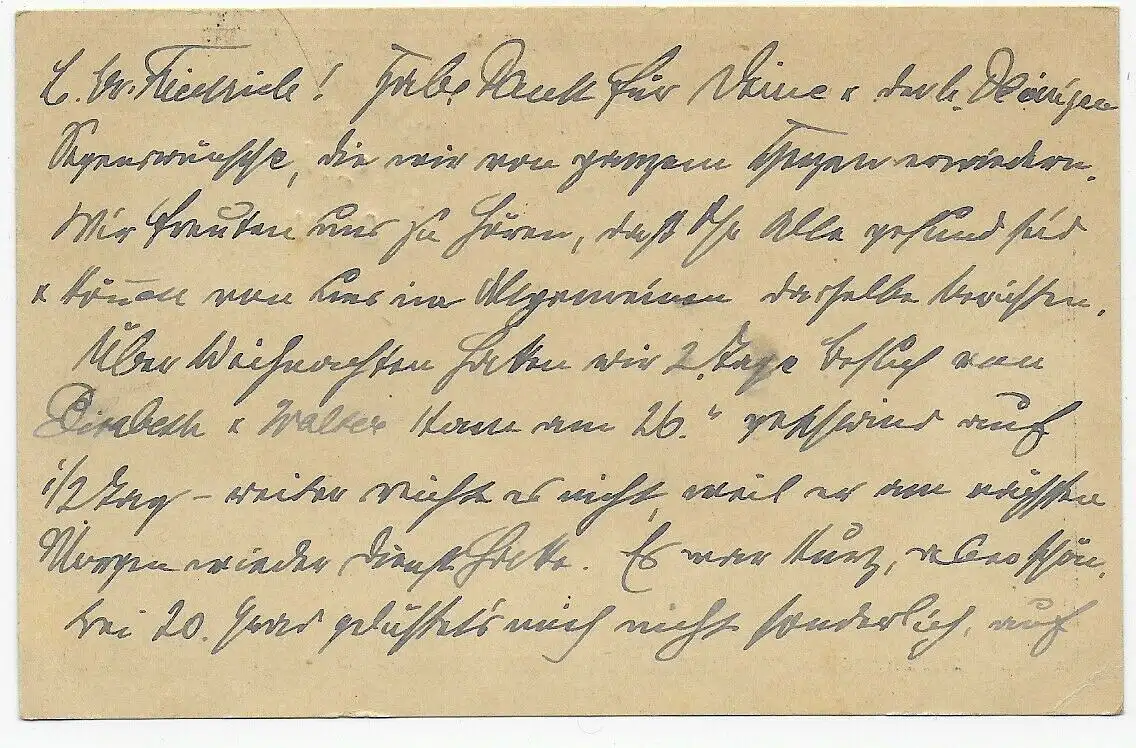 L. Br. Friedrich! Habe Dank für Deine u. der l. Übrigen
Segenswünsche, die wir von ganzem Herzen erwiedern.
Wir freuten uns zu hören, daß Ihr Alle gesund seid
u. können von uns im Allgemeinen dasselbe berichten.
Über Weihnachten hatten wir 2 Tage Besuch von
Elisabeth u. Walter kam am 26. auf
1/2 Tag – weiter reichte es nicht, weil er am nächsten
Morgen wieder Dienst hatte. Es war kurz, aber schön,
bei 20. Grad gelüstet's mich nicht sonderlich, auf